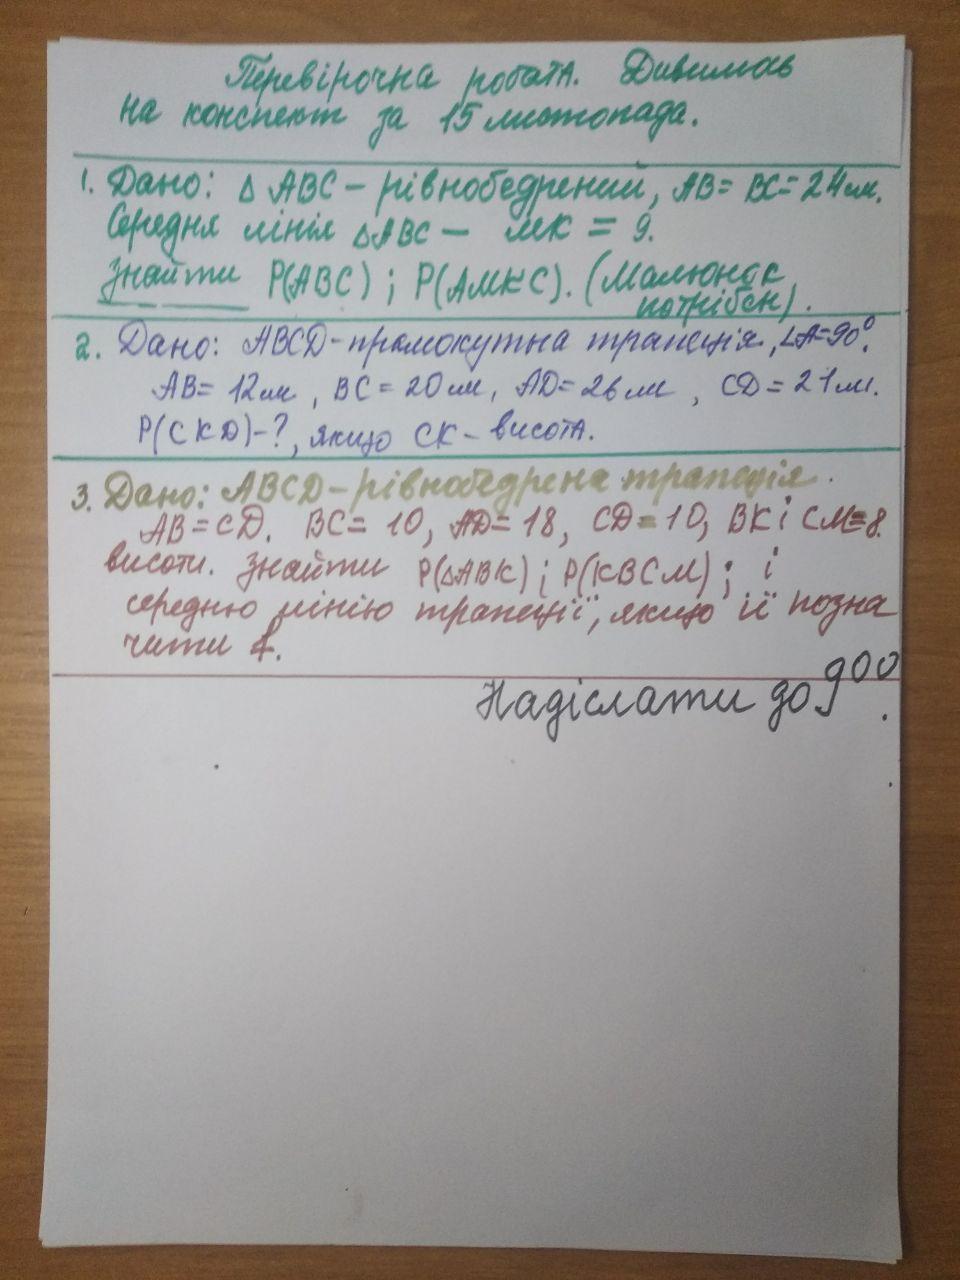 Перевірочна робота. Дивимось
на конспект за 15 листопада.
1. Дано: Δ ABC – рівнобедрений, AB = BC = 24 м.
Середня лінія ΔABC – MK = 9.
Знайти P(ABC) ; P(AMKC). (Малюнок
потрібен).
2. Дано: ABCD – прямокутна трапеція, ∠A=90°.
AB = 12 м, BC = 20 м, AD = 26 м, CD = 21 м.
P(CKD) – ?, якщо CK – висота.
3. Дано: ABCD – рівнобедрена трапеція.
AB = CD. BC = 10, AD = 18, CD = 10, BK і CM = 8.
висоти. Знайти P(ΔABK) ; P(KBCM) ; і
середню лінію трапеції, якщо її позна
чити f.
Надіслати до 9⁰⁰.